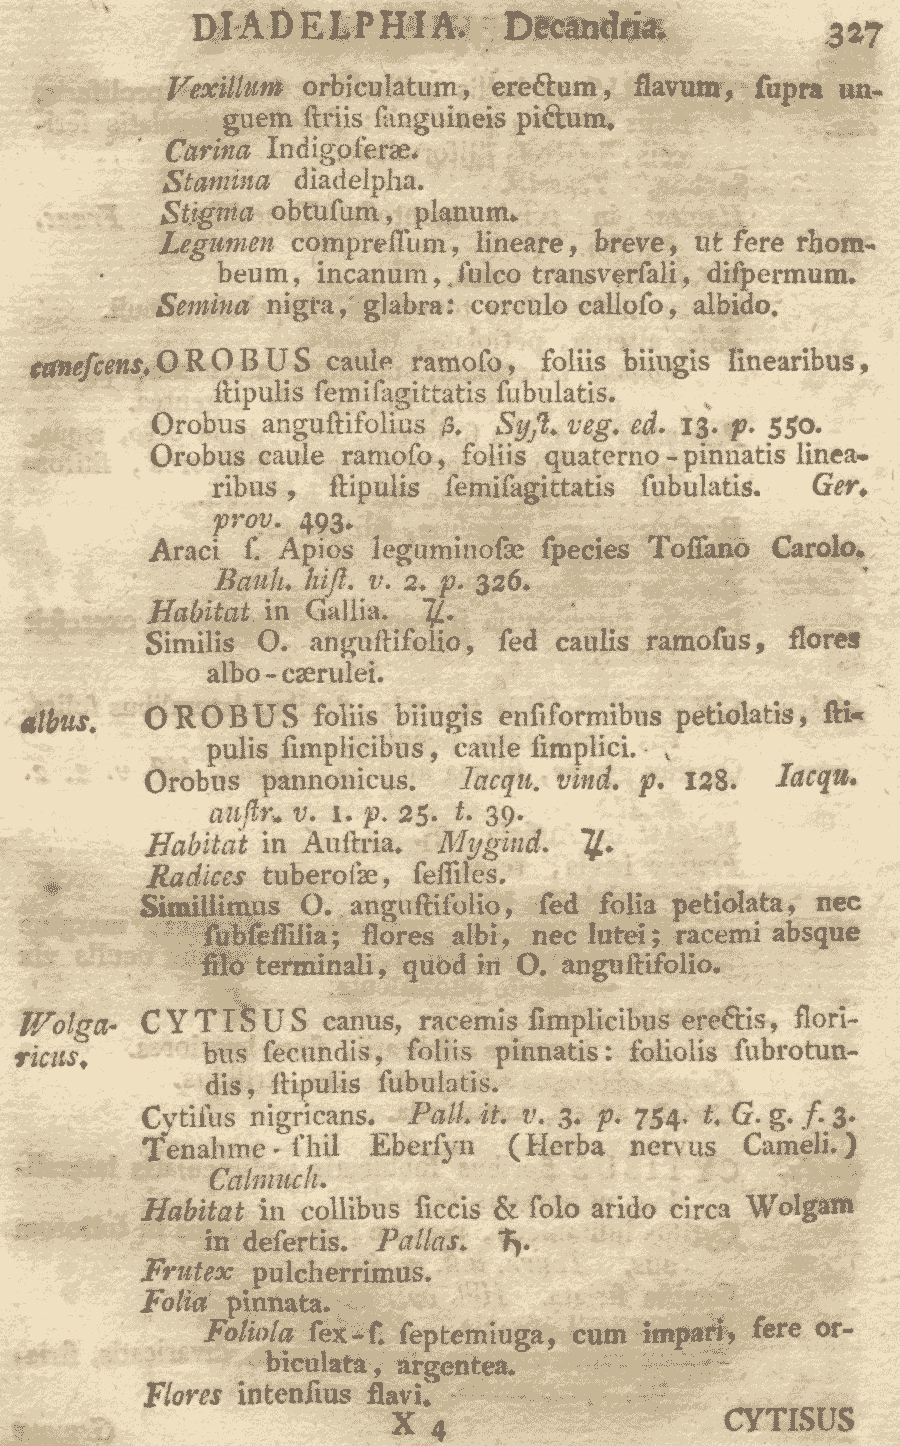 DIADELPHIA. Decandria. 327
Vexillum orbiculatum, erectum, flavum, ſupra un-
guem ſtriis ſanguineis pictum.
Carina Indigoferæ.
Stamina diadelpha.
Stigma obtuſum, planum.
Legumen compreſſum, lineare, breve, ut fere rhom-
beum, incanum, ſulco transverſali, diſpermum.
Semina nigra, glabra: corculo calloſo, albido.
caneſcens. OROBUS caule ramoſo, foliis biiugis linearibus,
ſtipulis ſemiſagittatis ſubulatis.
Orobus anguſtifolius β. Syſt. veg. ed. 13. p. 550.
Orobus caule ramoſo, foliis quaterno-pinnatis linea-
ribus, ſtipulis ſemiſagittatis ſubulatis. Ger.
prov. 493.
Araci ſ. Apios leguminoſæ ſpecies Toſſano Carolo.
Bauh. hiſt. v. 2. p. 326.
Habitat in Gallia. ♃.
Similis O. anguſtifolio, ſed caulis ramoſus, flores
albo-cærulei.
albus. OROBUS foliis biiugis enſiformibus petiolatis, ſti-
pulis ſimplicibus, caule ſimplici.
Orobus pannonicus. Iacqu. vind. p. 128. Iacqu.
auſtr. v. 1. p. 25. t. 39.
Habitat in Auſtria. Mygind. ♃.
Radices tuberoſæ, ſeſſiles.
Simillimus O. anguſtifolio, ſed folia petiolata, nec
ſubſeſſilia; flores albi, nec lutei; racemi absque
filo terminali, quod in O. anguſtifolio.
Wolga- CYTISUS canus, racemis ſimplicibus erectis, flori-
ricus. bus ſecundis, foliis pinnatis: foliolis ſubrotun-
dis, ſtipulis ſubulatis.
Cytiſus nigricans. Pall. it. v. 3. p. 754. t. G. g. f. 3.
Tenahme-ſhil Eberſyn (Herba nervus Cameli.)
Calmuch.
Habitat in collibus ſiccis & ſolo arido circa Wolgam
in deſertis. Pallas. ♄.
Frutex pulcherrimus.
Folia pinnata.
Foliola ſex-ſ. ſeptemiuga, cum impari, fere or-
biculata, argentea.
Flores intenſius flavi.
X 4 CYTISUS